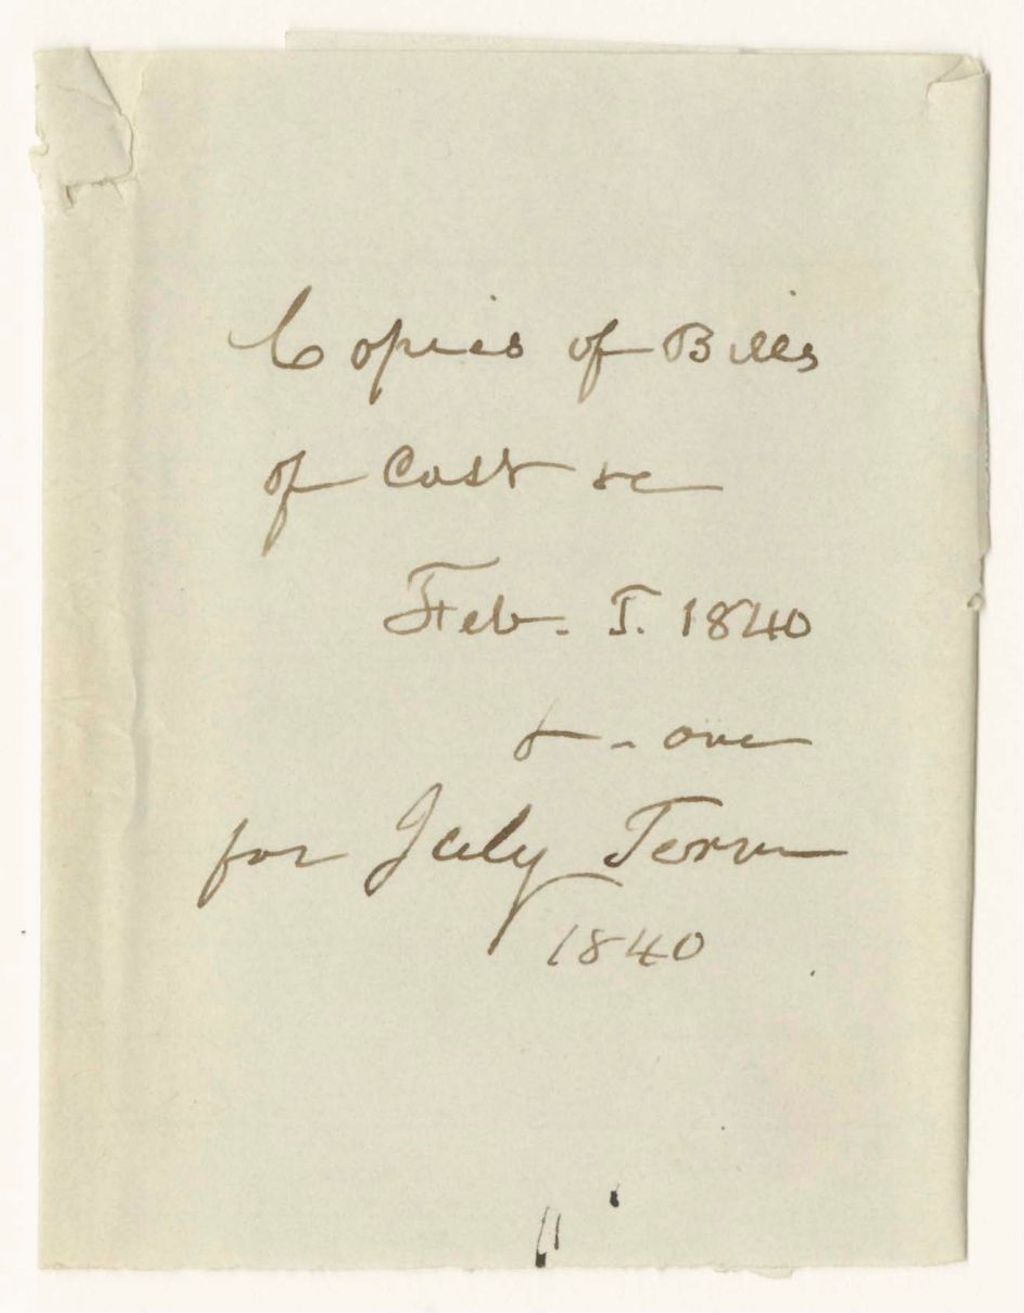 Copies of Bills
of Cost &c
Feb. T. 1840
& - one
for July Term
1840